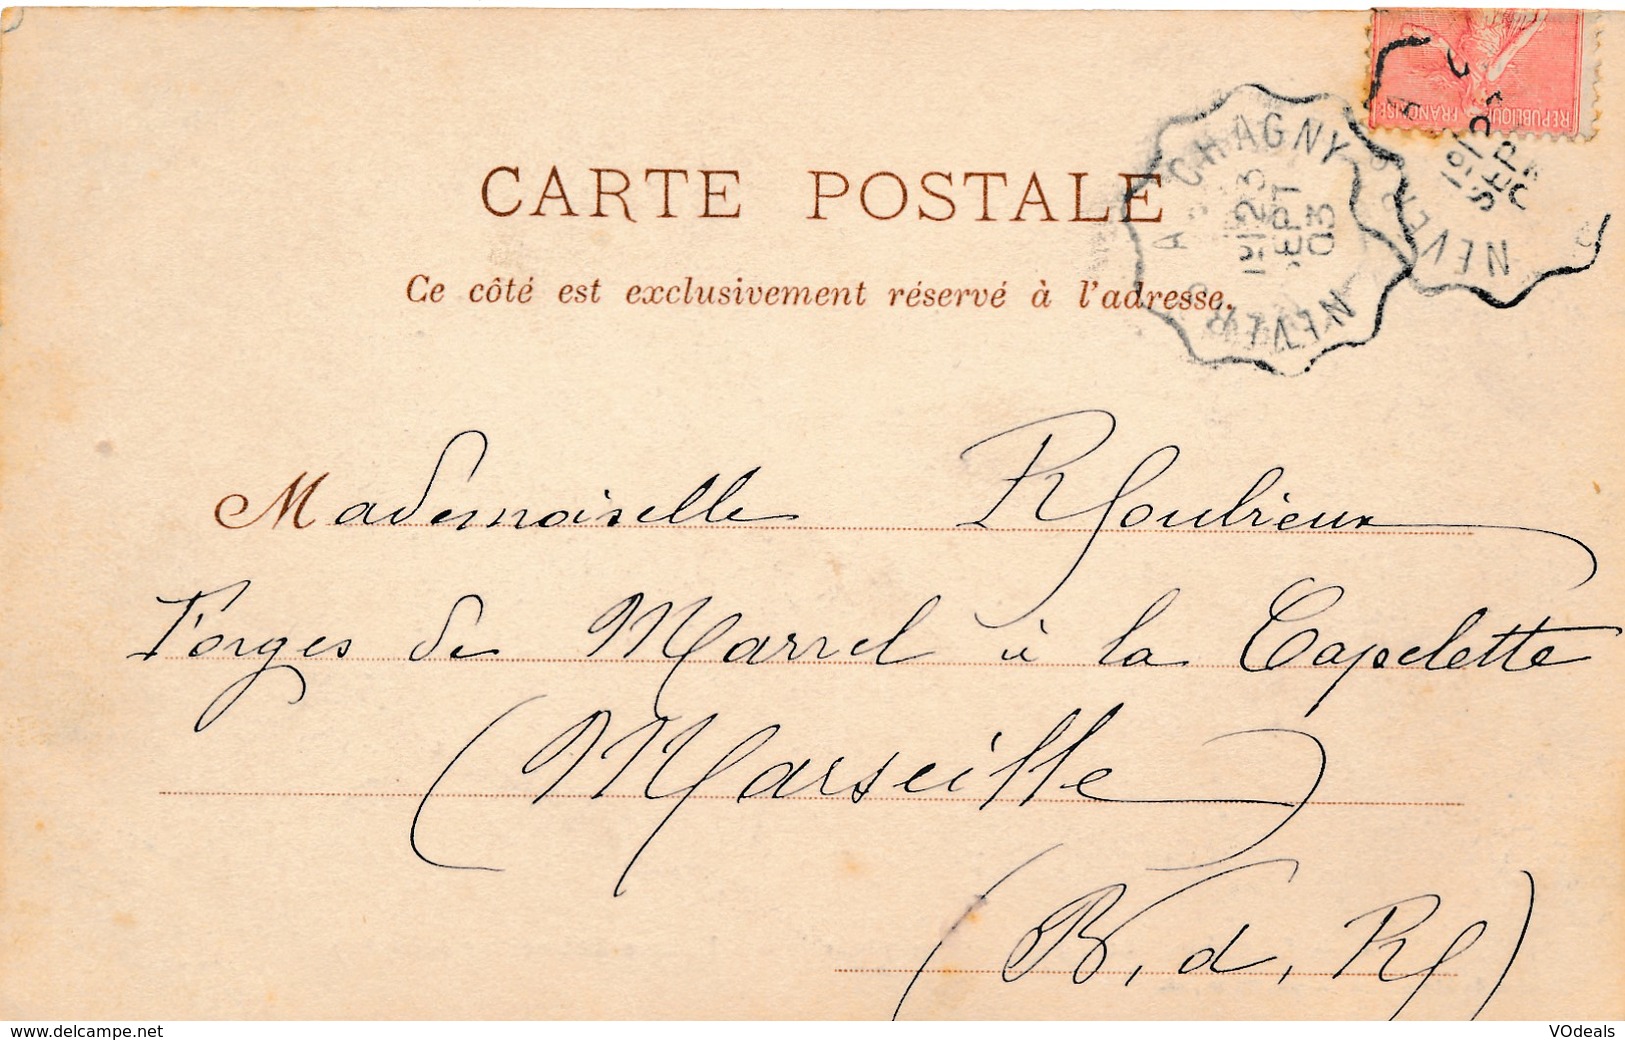 REPUBLIQUE FRANÇAISE
CHAGNY A NEVERS
1º/23
SEPT
03
NEVERS
1º/2
SEPT
CARTE POSTALE
Ce côté est exclusivement réservé à l'adresse.
Mademoiselle Rhoubieux
Forges de Marrel à la Capelette
(Marseille)
(B. d. Rh)
www.delcampe.net
VOdeals